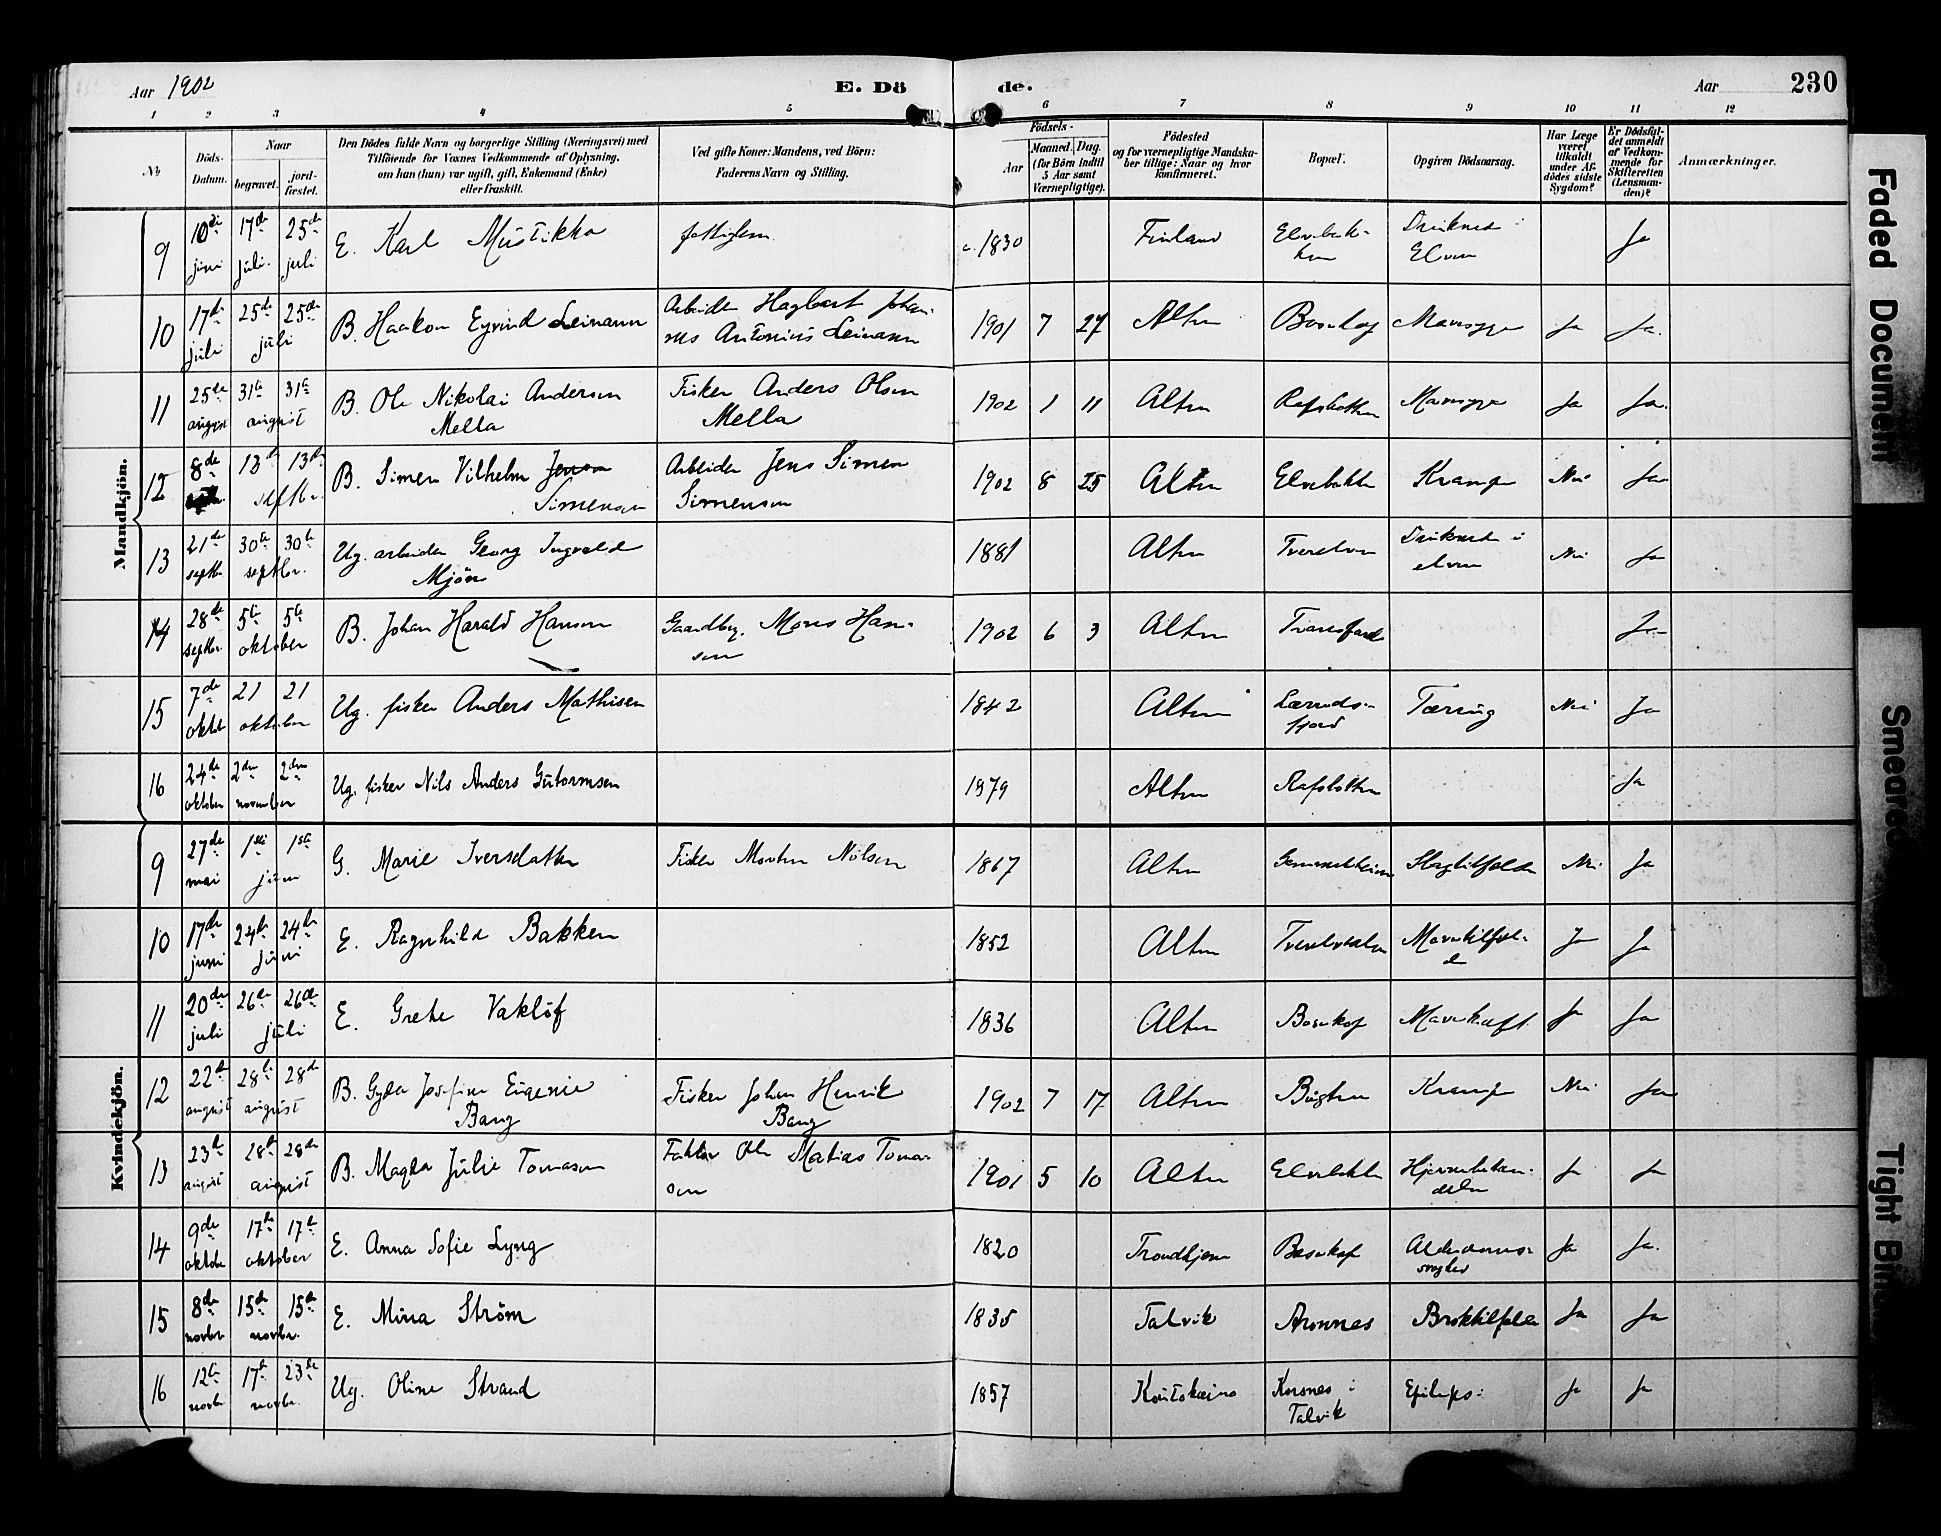 Aar 1902
E. Dö
de.
Aar
230
1 2 3 4 5 6 7 8 9 10 11 12
No
Döds-
Datum.
Naar
begravet.
jord-
fæstet.
Den Dödes fulde Navn og borgerlige Stilling (Næringsvei) med
Tilföiende for Voxnes Vedkommende af Oplysning,
om han (hun) var ugift, gift, Enkemand (Enke)
eller fraskilt.
Ved gifte Koner: Mandens, ved Börn:
Faderens Navn og Stilling.
Födsels-
Aar
Maaned. Dag.
(for Börn indtil
5 Aar samt
Værnepligtige).
Födested
og for værnepligtige Mandska-
ber tillige: Naar og hvor
konfirmeret.
Bopæl.
Opgiven Dödsaarsag.
Har Læge
været
tilkaldt
under Af-
dödes sidste
Sygdom?
Er Dödsfal-
det anmeldt
af Vedkom-
mende for
Skifteretten
(Lensman-
den)?
Anmærkninger.
Mandkjön.
9 10de juni 17de juli 25de juli E. Karl Mustikka c. 1830 Finland Elvebak-
ken Druknede i
Elven Ja
10 17de juli 25de 25de juli B. Haakon Eyvind Leinann Arbeider Hagbart Johan-
nes Antonius Leinann 1901 7 27 Alten Bosekop Mavesyge Ja Ja.
11 25de august 31te 31te august B. Ole Nikolai Andersen
Mella Fisker Anders Olsen
Mella 1902 1 11 Alten Rafsbotten Mavesyge Ja Ja.
12 8de 13de 13de septbr. B. Simen Vilhelm Jensen
Simensen Arbeider Jens Simen
Simensen 1902 8 25 Alten Elvebakken Krampe Nei Ja
13 21de septbr 30te 30te septbr. Ug. arbeider Georg Ingvald
Mjøen 1881 Alten Tverelven Druknede i
elven Nei Ja
14 28de septbr 5te 5te oktober B. Johan Harald Hansen Gaardbr. Mons Han-
sen 1902 6 3 Alten Transfarel Ja
15 7de oktbr 21 21 oktober Ug. fisker Anders Mathisen 1842 Alten Lærreds-
fjord Tæring Nei Ja
16 24de oktober 2den 2den november Ug. fisker Nils Anders Guttormsen 1879 Alten Rafsbotten Ja
Kvindekjön.
9 27de mai 1ste 1ste juni G. Marie Iversdatter Fisker Morten Nilsen 1867 Alten Gammelheimen Slagtilfælde Nei Ja
10 17de juni 24de 24de juni E. Ragnhild Bakken 1852 Alten Tverelvdalen Mavetilfæl-
de Ja Ja
11 20de juli 26de 26de juli E. Grete Vakløf 1836 Alten Bosekop Mavekræft Ja Ja
12 22de august 28de 28de august B. Gyda Josefine Eugenie
Bang Fisker Johan Henrik
Bang 1902 7 17 Alten Bugten Krampe Nei Ja
13 23de august 28de 28de august B. Magda Julie Tomasen Faktor Ole Matias Toma-
sen 1901 5 10 Alten Elvebakken Hjernebetæn-
delse Ja Ja
14 9de oktober 17de 17de oktober E. Anna Sofie Lyng 1820 Trondhjem Bosekop Alderdoms-
svaghed Ja Ja.
15 8de novbr 15de 15de novbr. E. Mina Strøm 1835 Talvik Aronnes Broktilfælde Ja Ja
16 12te novbr 17de 23de novbr. Ug. Oline Strand 1857 Koutokeino Korsnes i
Talvik Epilepsi Ja Ja
Faded Document
Smeared
Tight Bin